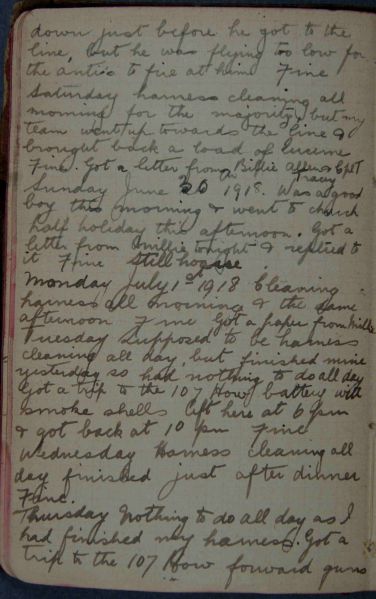 down just before he got to the
line, but he was flying too low for
the anti's to fire at him Fine
Saturday harness cleaning all
morning for the majority, but my
team went up towards the line &
brought back a load of lucerne
Fine. Got a letter from Billie
Sunday June 30th 1918. Was a good
boy this morning & went to church
half holiday this afternoon. Got a
letter from Millie tonight & replied to
it Fine Still hoarse
Monday July 1st 1918 Cleaning
harness all morning & the same
afternoon Fine Got a paper from Millie
Tuesday Supposed to be harness
cleaning all day, but finished mine
yesterday so had nothing to do all day
Got a trip to the 107 How. battery with
smoke shells left here at 6 pm
& got back at 10 pm Fine
Wednesday Harness cleaning all
day finished just after dinner
Fine.
Thursday Nothing to do all day as I
had finished my harness. Got a
trip to the 107 How forward guns